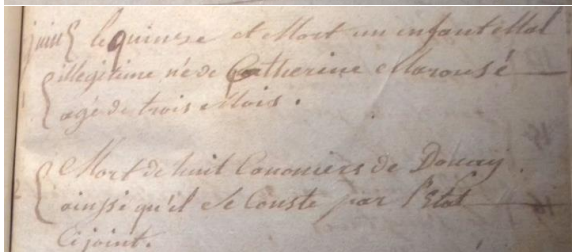 juin { le quinze est Mort un enfant Mal
illegitime née de Catherine Marousé
agé de trois Mois.
Mort de huit Canoniers de Douay
ainsi qu'il se Conste par l'Etat
Cijoint.